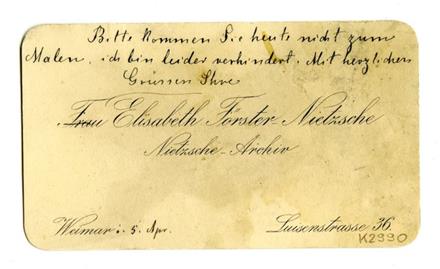 Bitte kommen Sie heute nicht zum
Malen, ich bin leider verhindert. Mit herzlichen
Grüssen Ihre
Frau Elisabeth Förster-Nietzsche
Nietzsche-Archiv
Weimar: 5. Apr.
Luisenstrasse 36.
K2990